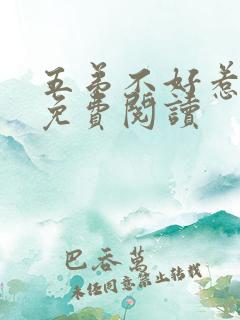 五弟不好惹
免費閱讀
巴吞萬
未经同意禁止转载